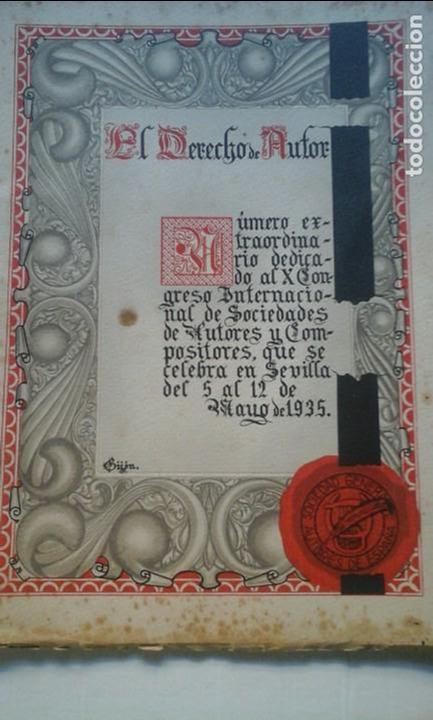 El Derecho de Autor
Número ex-
traordina-
rio dedica-
do al X Con-
greso Internacio-
nal de Sociedades
de Autores y Com-
positores, que se
celebra en Sevilla
del 5 al 12 de
Mayo de 1935.
Gijón.
SOCIEDAD GENERAL
AUTORES DE ESPAÑA
todocoleccion